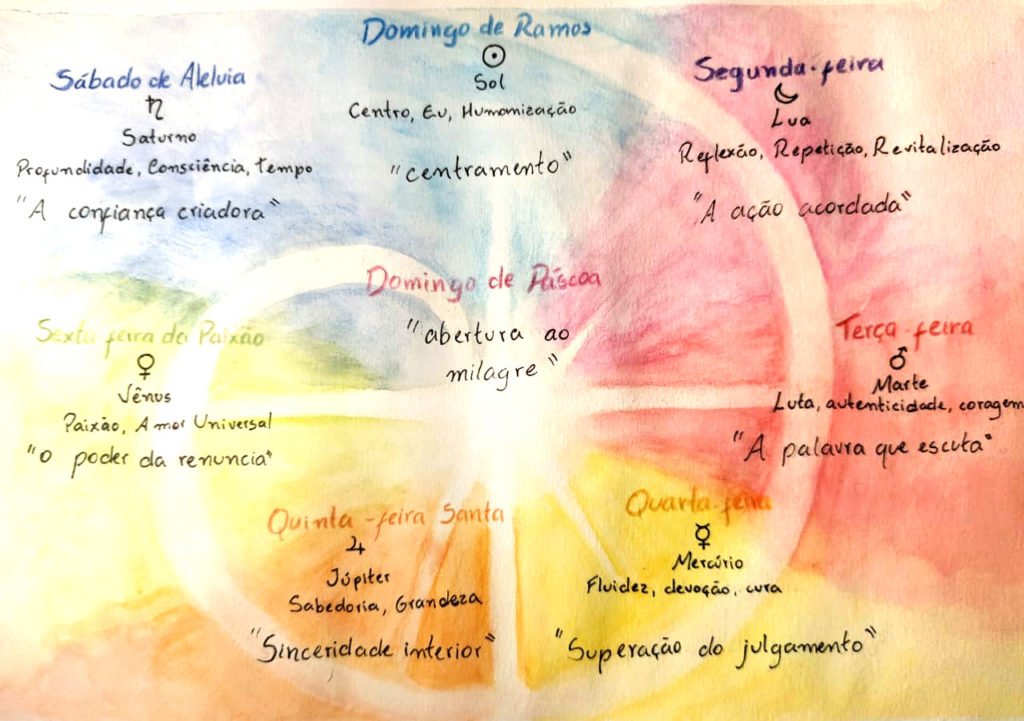 Domingo de Ramos
☉
Sol
Centro, Eu, Humanização
"centramento"
Segunda-feira
☾
Lua
Reflexão, Repetição, Revitalização
"A ação acordada"
Terça-feira
♂
Marte
Luta, autenticidade, coragem
"A palavra que escuta"
Quarta-feira
☿
Mercúrio
Fluidez, devoção, cura
"Superação do julgamento"
Quinta-feira Santa
♃
Júpiter
Sabedoria, Grandeza
"Sinceridade interior"
Sexta feira da Paixão
♀
Vênus
Paixão, Amor Universal
"o poder da renuncia"
Sábado de Aleluia
♄
Saturno
Profundidade, Consciência, Tempo
"A confiança criadora"
Domingo de Páscoa
"abertura ao
milagre"